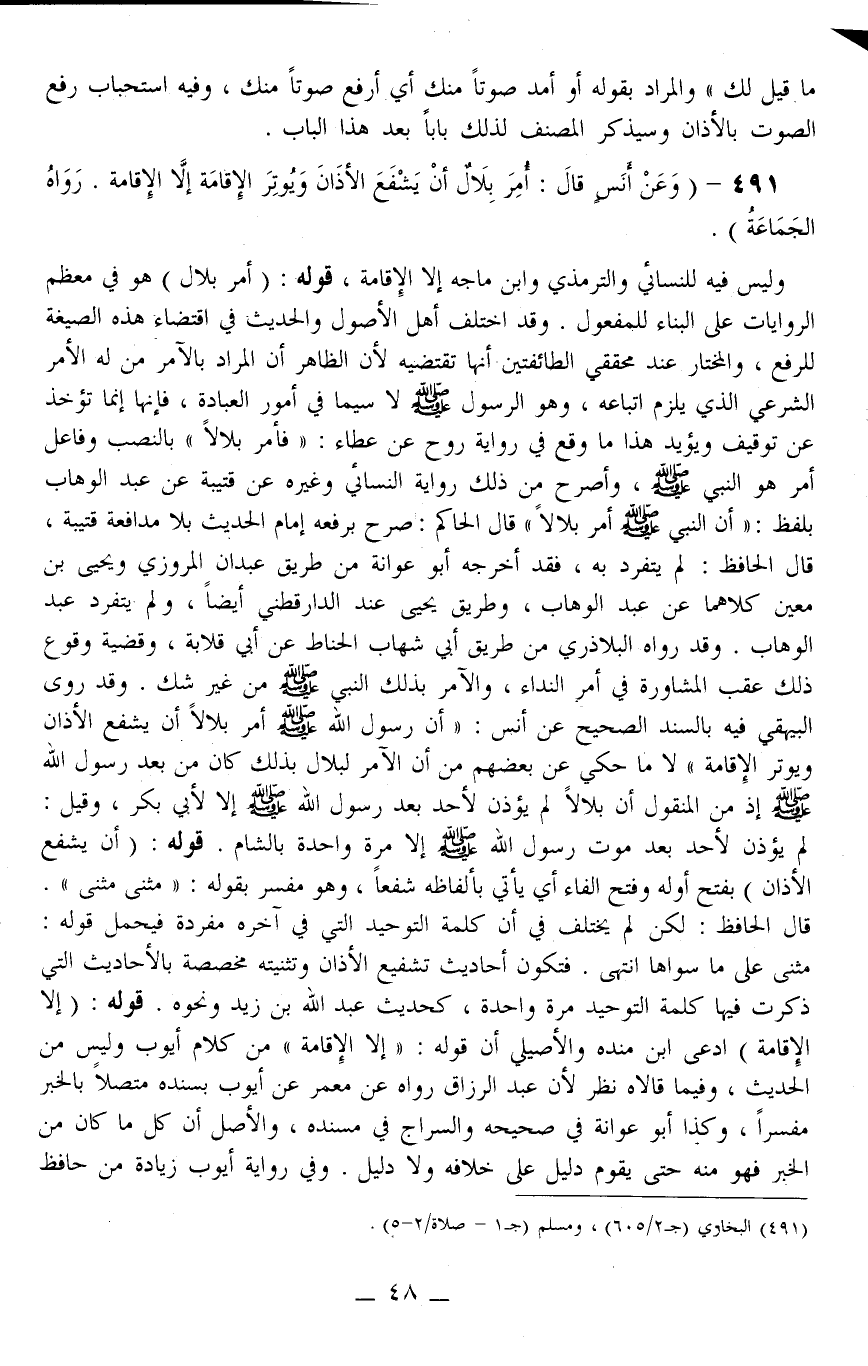 ما قيل لك » والمراد بقوله أو أمد صوتاً منك أي أرفع صوتاً منك ، وفيه استحباب رفع
الصوت بالأذان وسيذكر المصنف لذلك باباً بعد هذا الباب .
٤٩١ – ( وَعَنْ أَنَسٍ قالَ : أُمِرَ بِلَالٌ أنْ يَشْفَعَ الأذَانَ وَيُوتِرَ الإِقامَة إلَّا الإِقامة . رَوَاهُ
الجَمَاعَةُ ) .
وليس فيه للنسائي والترمذي وابن ماجه إلا الإِقامة ، قوله : ( أمر بلال ) هو في معظم
الروايات على البناء للمفعول . وقد اختلف أهل الأصول والحديث في اقتضاء هذه الصيغة
للرفع ، والمختار عند محققي الطائفتين أنها تقتضيه لأن الظاهر أن المراد بالآمر من له الأمر
الشرعي الذي يلزم اتباعه ، وهو الرسول ﷺ لا سيما في أمور العبادة ، فإنها إنما تؤخذ
عن توقيف ويؤيد هذا ما وقع في رواية روح عن عطاء : « فأمر بلالاً » بالنصب وفاعل
أمر هو النبي ﷺ ، وأصرح من ذلك رواية النسائي وغيره عن قتيبة عن عبد الوهاب
بلفظ : « أن النبي ﷺ أمر بلالاً » قال الحاكم : صرح برفعه إمام الحديث بلا مدافعة قتيبة ،
قال الحافظ : لم يتفرد به ، فقد أخرجه أبو عوانة من طريق عبدان المروزي ويحيى بن
معين كلاهما عن عبد الوهاب ، وطريق يحيى عند الدارقطني أيضاً ، ولم يتفرد عبد
الوهاب . وقد رواه البلاذري من طريق أبي شهاب الحناط عن أبي قلابة ، وقضية وقوع
ذلك عقب المشاورة في أمر النداء ، والآمر بذلك النبي ﷺ من غير شك . وقد روى
البيهقي فيه بالسند الصحيح عن أنس : « أن رسول الله ﷺ أمر بلالاً أن يشفع الأذان
ويوتر الإِقامة » لا ما حكي عن بعضهم من أن الآمر لبلال بذلك كان من بعد رسول الله
ﷺ إذ من المنقول أن بلالاً لم يؤذن لأحد بعد رسول الله ﷺ إلا لأبي بكر ، وقيل :
لم يؤذن لأحد بعد موت رسول الله ﷺ إلا مرة واحدة بالشام . قوله : ( أن يشفع
الأذان ) بفتح أوله وفتح الفاء أي يأتي بألفاظه شفعاً ، وهو مفسر بقوله : « مثنى مثنى » .
قال الحافظ : لكن لم يختلف في أن كلمة التوحيد التي في آخره مفردة فيحمل قوله :
مثنى على ما سواها انتهى . فتكون أحاديث تشفيع الأذان وتثنيته مخصصة بالأحاديث التي
ذكرت فيها كلمة التوحيد مرة واحدة ، كحديث عبد الله بن زيد ونحوه . قوله : ( إلا
الإِقامة ) ادعى ابن منده والأصيلي أن قوله : « إلا الإِقامة » من كلام أيوب وليس من
الحديث ، وفيما قالاه نظر لأن عبد الرزاق رواه عن معمر عن أيوب بسنده متصلاً بالخبر
مفسراً ، وكذا أبو عوانة في صحيحه والسراج في مسنده ، والأصل أن كل ما كان من
الخبر فهو منه حتى يقوم دليل على خلافه ولا دليل . وفي رواية أيوب زيادة من حافظ
(٤٩١) البخاري (جـ٦٠٥/٢) ، ومسلم (جـ١ – صلاة/٢–٥) .
— ٤٨ —